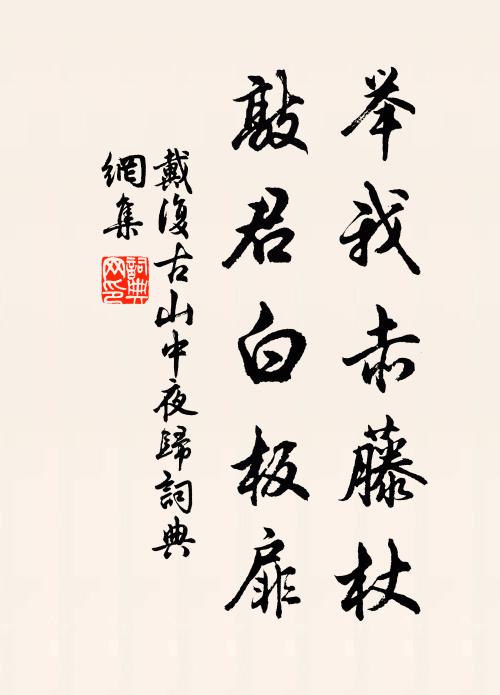 举我赤藤杖
敲君白板扉
戴復古山中夜歸詞典
網集
詞典
网印